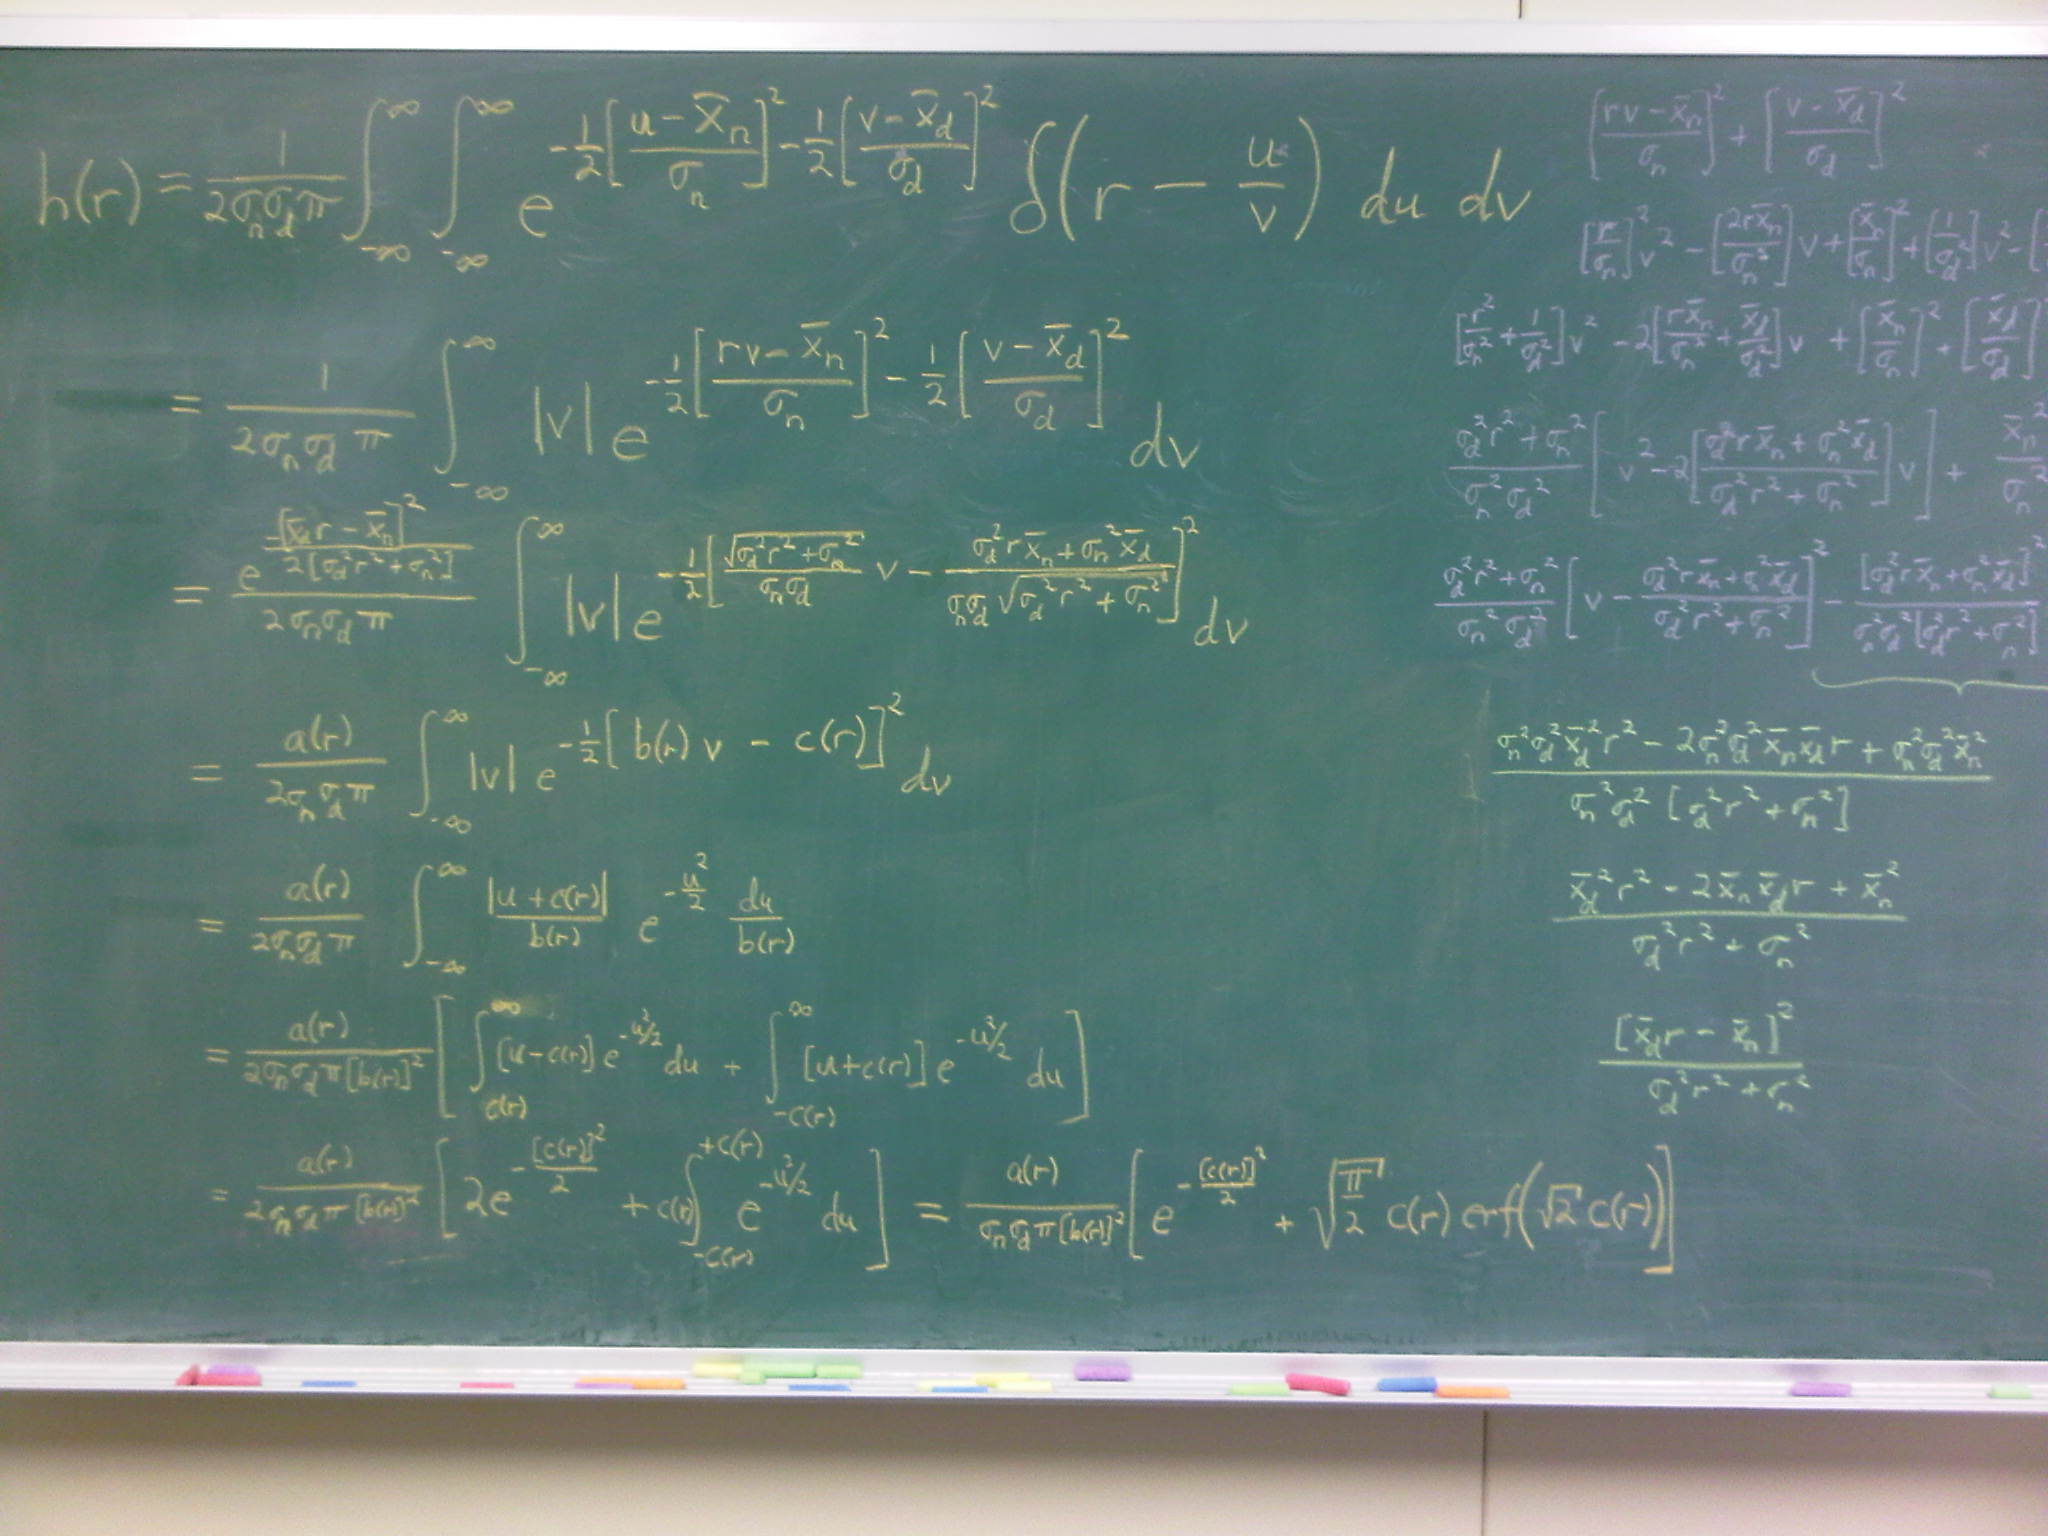 h(r) = \frac{1}{2σ_nσ_dπ} ∫_{-∞}^{∞} ∫_{-∞}^{∞} e^{-\frac{1}{2}[\frac{u-x̄_n}{σ_n}]^2 - \frac{1}{2}[\frac{v-x̄_d}{σ_d}]^2} δ(r - \frac{u}{v}) du dv
= \frac{1}{2σ_nσ_dπ} ∫_{-∞}^{∞} |v| e^{-\frac{1}{2}[\frac{rv-x̄_n}{σ_n}]^2 - \frac{1}{2}[\frac{v-x̄_d}{σ_d}]^2} dv
= \frac{e^{\frac{-[x̄_d r - x̄_n]^2}{2[σ_d^2r^2+σ_n^2]}}}{2σ_nσ_dπ} ∫_{-∞}^{∞} |v| e^{-\frac{1}{2}[\frac{\sqrt{σ_d^2r^2+σ_n^2}}{σ_nσ_d} v - \frac{σ_d^2rx̄_n+σ_n^2x̄_d}{σ_nσ_d\sqrt{σ_d^2r^2+σ_n^2}}]^2} dv
= \frac{a(r)}{2σ_nσ_dπ} ∫_{-∞}^{∞} |v| e^{-\frac{1}{2}[b(r)v - c(r)]^2} dv
= \frac{a(r)}{2σ_nσ_dπ} ∫_{-∞}^{∞} \frac{|u+c(r)|}{b(r)} e^{-\frac{u^2}{2}} \frac{du}{b(r)}
= \frac{a(r)}{2σ_nσ_dπ[b(r)]^2} [∫_{c(r)}^{∞} [u-c(r)] e^{-u^2/2} du + ∫_{-c(r)}^{∞} [u+c(r)] e^{-u^2/2} du]
= \frac{a(r)}{2σ_nσ_dπ[b(r)]^2} [2e^{-\frac{[c(r)]^2}{2}} + c(r) ∫_{-c(r)}^{+c(r)} e^{-u^2/2} du] = \frac{a(r)}{σ_nσ_dπ[b(r)]^2} [e^{-\frac{[c(r)]^2}{2}} + \sqrt{\frac{π}{2}} c(r) erf(\sqrt{2} c(r))]
[\frac{rv-x̄_n}{σ_n}]^2 + [\frac{v-x̄_d}{σ_d}]^2
[\frac{r}{σ_n}]^2 v^2 - [\frac{2rx̄_n}{σ_n^2}] v + [\frac{x̄_n}{σ_n}]^2 + [\frac{1}{σ_d^2}] v^2 - [
[\frac{r^2}{σ_n^2} + \frac{1}{σ_d^2}] v^2 - 2[\frac{rx̄_n}{σ_n^2} + \frac{x̄_d}{σ_d^2}] v + [\frac{x̄_n}{σ_n}]^2 + [\frac{x̄_d}{σ_d}]
\frac{σ_d^2r^2+σ_n^2}{σ_n^2σ_d^2} [v^2 - 2[\frac{σ_d^2rx̄_n+σ_n^2x̄_d}{σ_d^2r^2+σ_n^2}] v] + \frac{x̄_n^2}{σ_n^2}
\frac{σ_d^2r^2+σ_n^2}{σ_n^2σ_d^2} [v - \frac{σ_d^2rx̄_n+σ_n^2x̄_d}{σ_d^2r^2+σ_n^2}]^2 - \frac{[σ_d^2rx̄_n+σ_n^2x̄_d]^2}{σ_n^2σ_d^2[σ_d^2r^2+σ_n^2]}
\frac{σ_n^2σ_d^2x̄_d^2r^2 - 2σ_n^2σ_d^2x̄_nx̄_dr + σ_n^2σ_d^2x̄_n^2}{σ_n^2σ_d^2[σ_d^2r^2+σ_n^2]}
\frac{x̄_d^2r^2 - 2x̄_nx̄_dr + x̄_n^2}{σ_d^2r^2+σ_n^2}
\frac{[x̄_dr - x̄_n]^2}{σ_d^2r^2+σ_n^2}